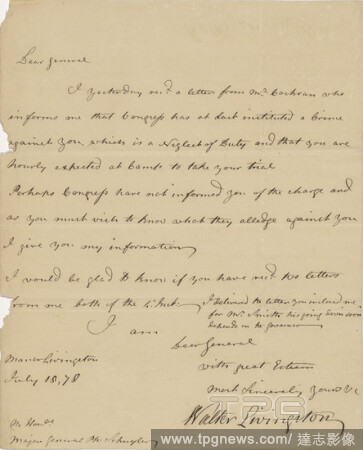 Dear General
I yesterday recd a letter from Mr. Cochran who
informs me that Congress has at last instituted a Crime
against you, which is a Neglect of Duty and that you are
hourly expected at Camp to take your trial
Perhaps Congress have not informed you of the charge and
as you must wish to know what they alledge against you
I give you my information
I would be glad to know if you have recd two letters
from me both of the Inst.
I delivered the letter you inclosed me
for Mr. Smith his going soon
depends on the Governor
I am
Dear General
with great Esteem
Most Sincerely Yours &c
Walter Livingston
Manor Livingston
July 18, 78
Major General Schuyler
TPG
www.tpgnews.com / 達志影像